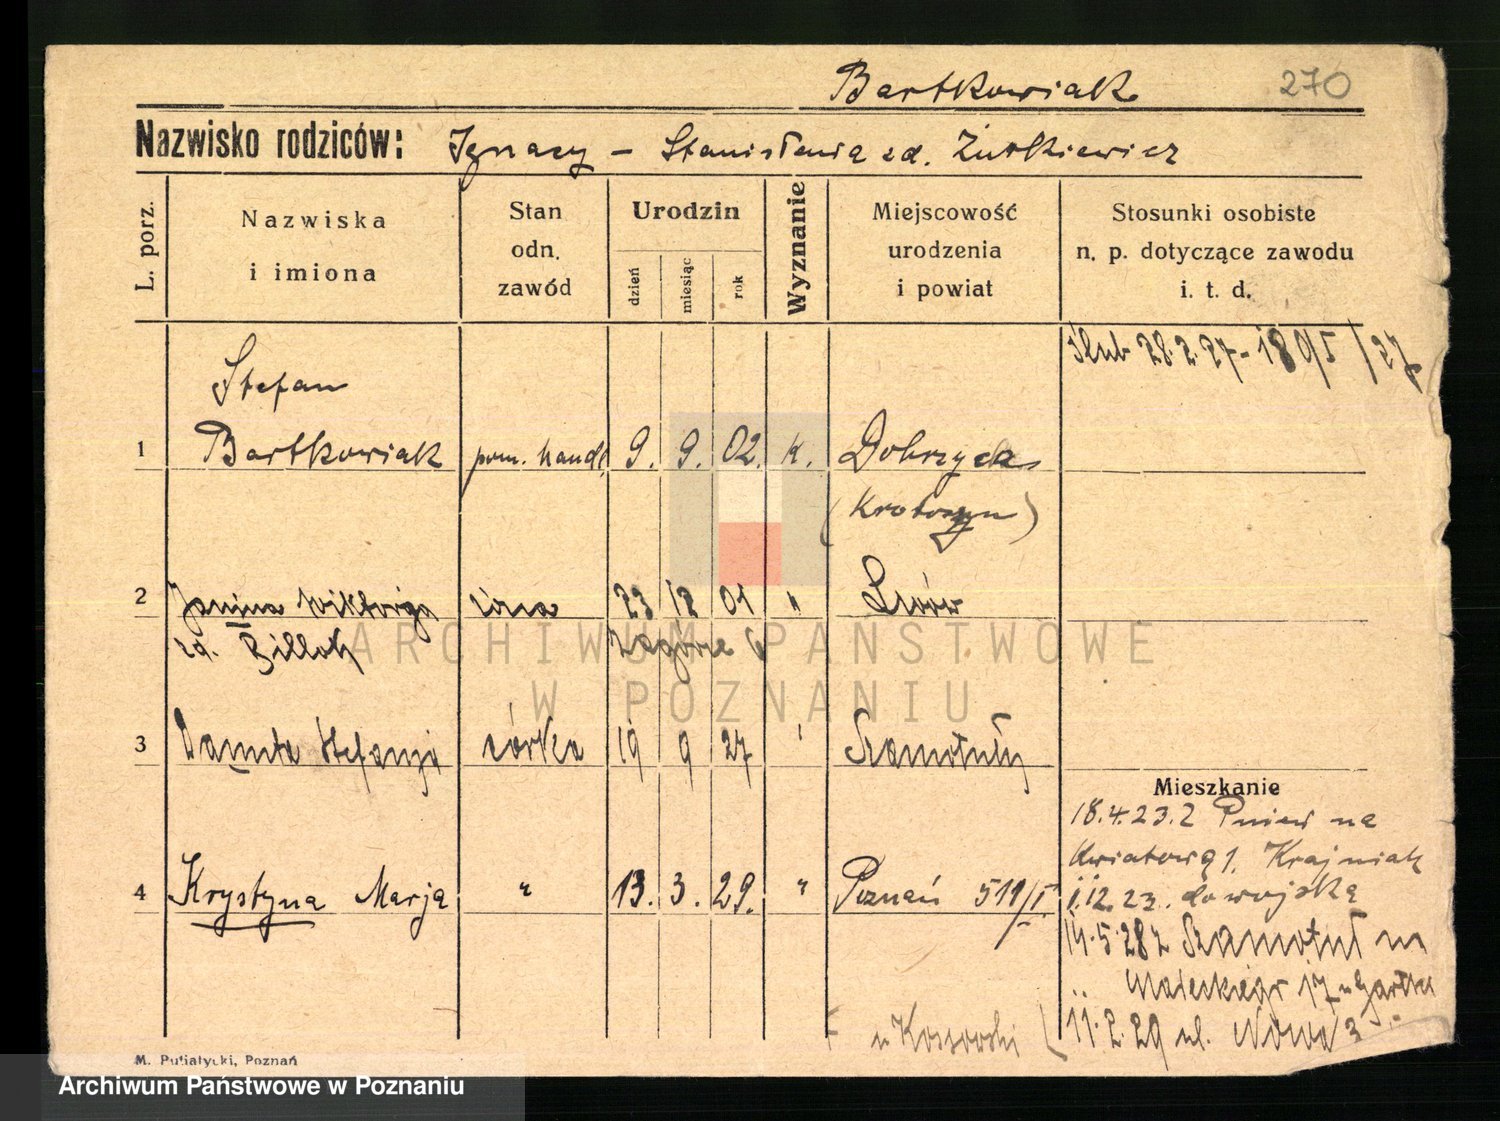 Bartkowiak 270
Nazwisko rodziców: Ignacy - Stanisława zd. Żurkiewicz
L. porz.
Nazwiska
i imiona
Stan
odn.
zawód
Urodzin
dzień
miesiąc
rok
Wyznanie
Miejscowość
urodzenia
i powiat
Stosunki osobiste
n. p. dotyczące zawodu
i. t. d.
ślub 28.2.27 -
Stefan
1 Bartkowiak pom. handl. 9. 9. 02. k. Dobrzyca
(Krotoszyn)
2 Janina Wiktorja żona 23 12 01 " Lwów
zd. Billok
ARCHIWUM PAŃSTWOWE
W POZNANIU
3 Danuta Stefanja córka 19 9 27 " Szamotuły
Mieszkanie
18.4.23. z Pniew na
Kwiatową 1. Krajniak
4 Krystyna Marja " 13. 3. 29. " Poznań 511/I.
1.12.23. do wojska
14.5.28 z Szamotuł na
Małeckiego 17
u Kossowski
11.2.29 ul. Nowa 3
M. Putiatycki, Poznań
Archiwum Państwowe w Poznaniu